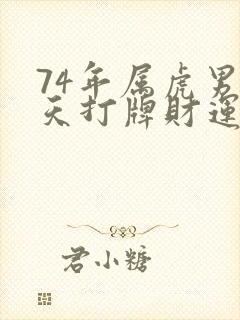 74年属虎男
天打牌財運
君小糖